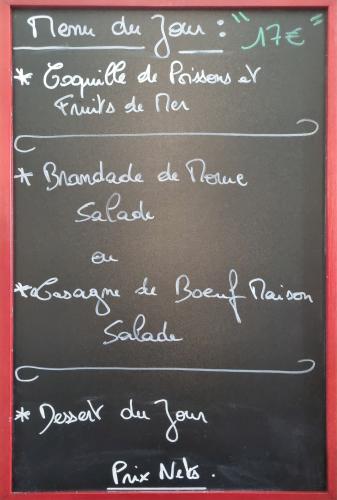 Menu du Jour : "17€"
* Coquille de Poissons et
Fruits de Mer
* Brandade de Morue
Salade
ou
* Lasagne de Boeuf Maison
Salade
* Dessert du Jour
Prix Nets.